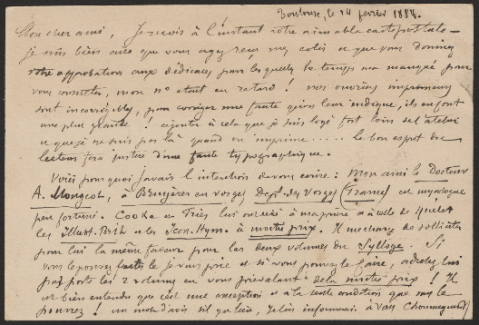 Toulouse, le 14 février 1888.
Mon cher ami, Je reçois à l'instant votre aimable carte postale —
je suis bien aise que vous ayez reçu mes colis et que vous donniez
votre approbation aux dédicaces, pour lesquels le temps me manqué pour
vous consulter, mon nº étant en retard ! nos ouvriers imprimeurs
sont incorrigibles, pour corriger une faute qu'on leur indique, ils en font
une plus grande ! ajoutez à cela que je suis logé fort loin de l'atelier
et que je ne suis pas là quand on imprime .... le bon esprit du
lecteur fera justice d'une faute typographique.
Voici pourquoi j'avais l'intention de vous écrire : Mon ami le Docteur
A. Mougeot, à Bruyères en vosges, Dept des Vosges (France) est mycologue
peu fortuné. Cooke et Triès lui ont cédé à ma prière
les Illust. Brit. et les Icon. Hym. à moitié prix. Il me charge de solliciter
pour lui la même faveur pour les deux volumes du Sylloge. Si
vous le pouvez faites le je vous prie et si vous pouvez le faire, adressez lui
les 2 volumes en vous prévalant de la moitié prix ! Il
est bien entendu que c'est une exception et à la seule condition que vous le
pouvez ! un mot d'avis s'il vous plait,